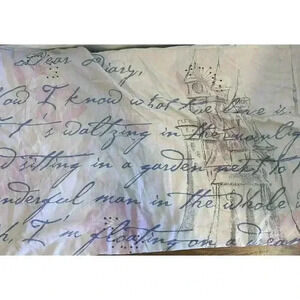 Dear Diary,
Now I know what the line is:
It's waltzing in the moonlig
nd sitting in a garden next to t
onderful man in the whole w
h, I'm floating on a dream